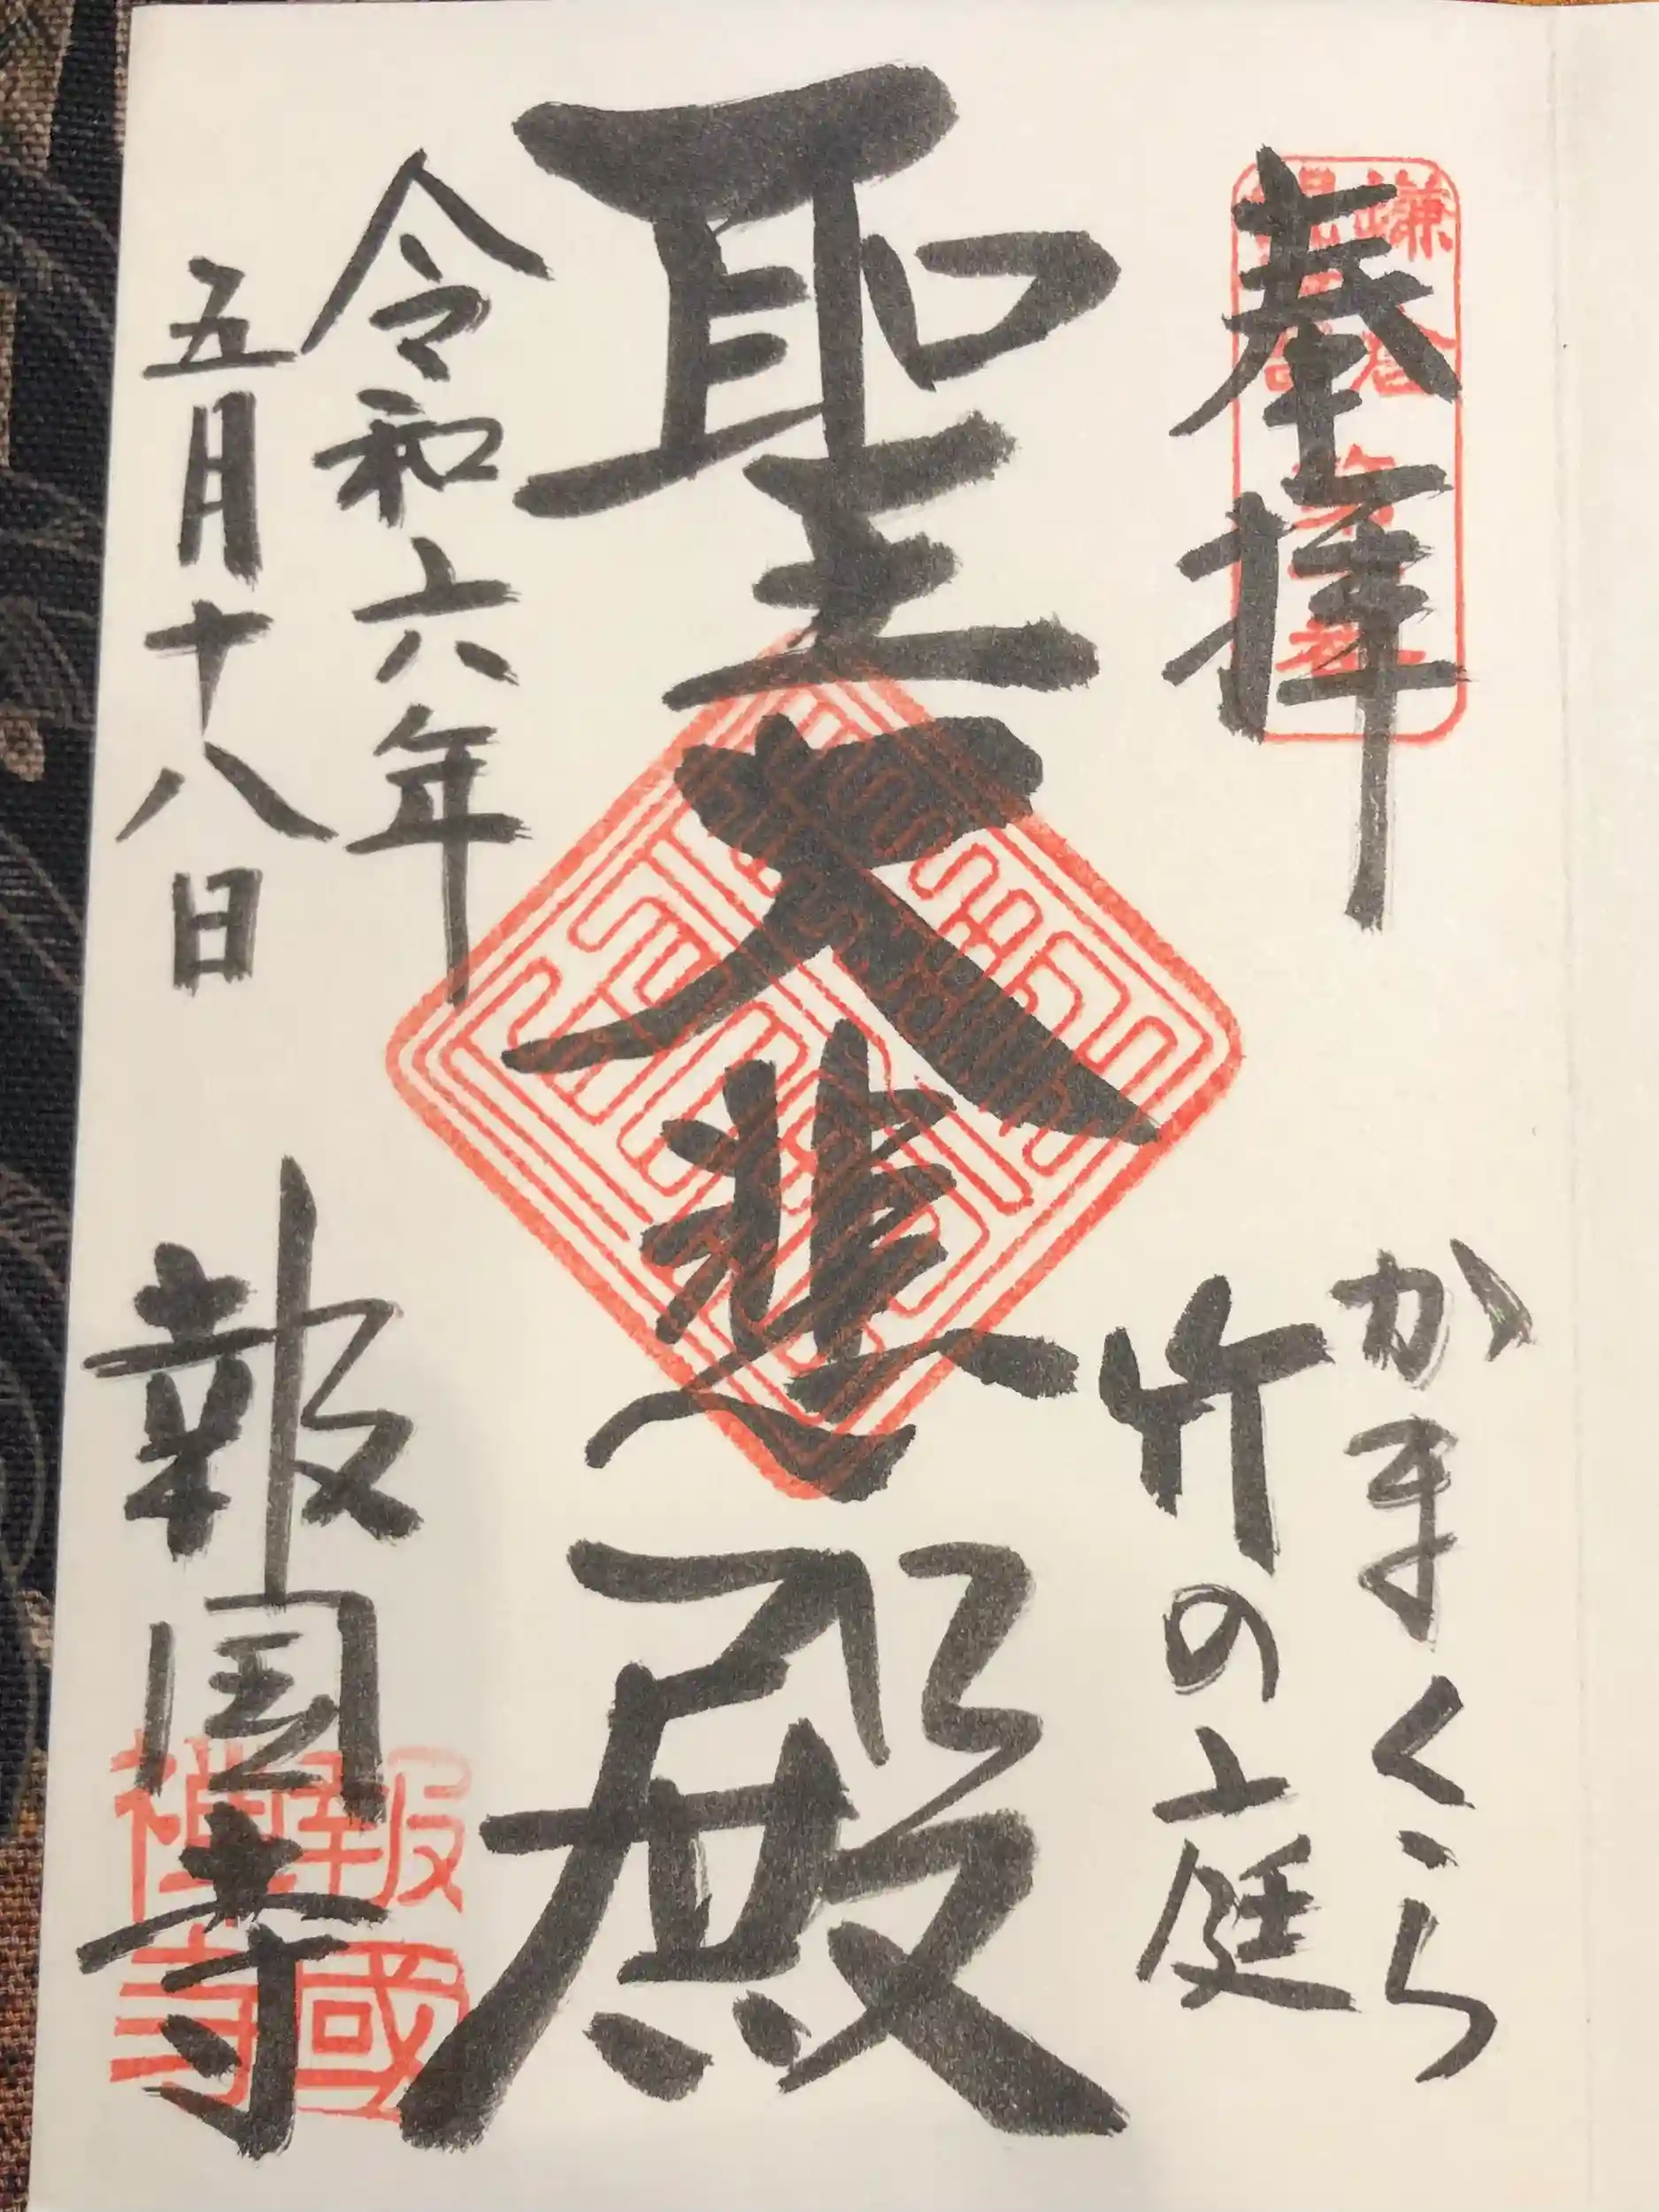 奉拝
かまくら
竹の庭
聖大悲殿
令和六年
五月十八日
報国寺
報國
禅寺